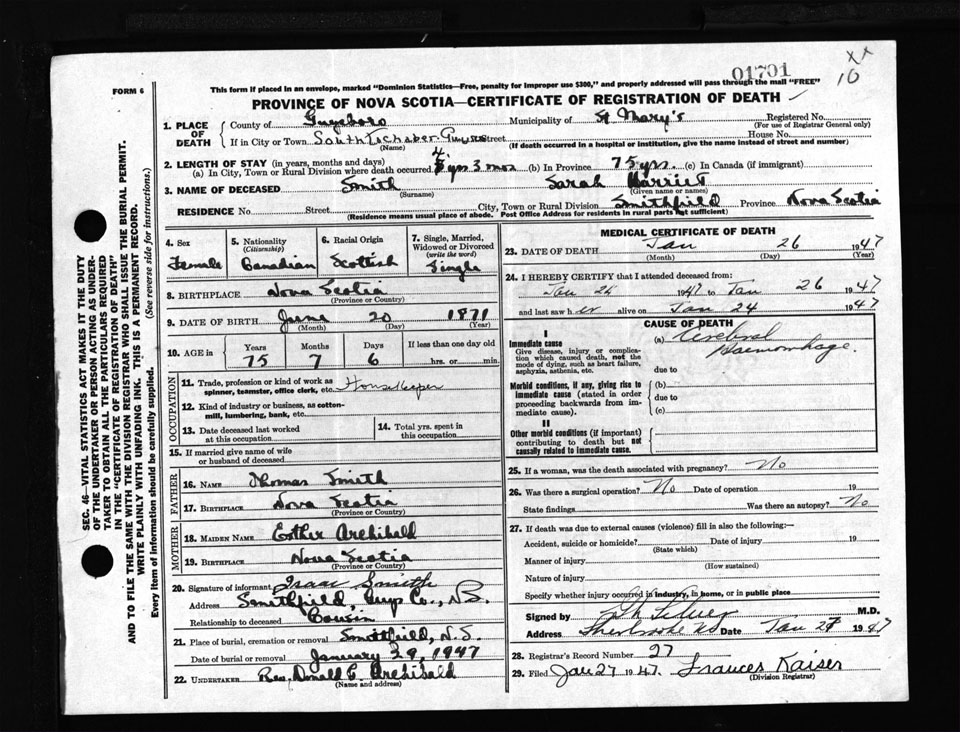 01701
xx
10
FORM 6
This form if placed in an envelope, marked "Dominion Statistics—Free, penalty for improper use $300," and properly addressed will pass through the mail "FREE"
PROVINCE OF NOVA SCOTIA—CERTIFICATE OF REGISTRATION OF DEATH
1. PLACE OF DEATH
County of Guysboro Municipality of St Mary's Registered No.
(For use of Registrar General only)
If in City or Town South Lochaber. Street House No.
(Name) (If death occurred in a hospital or institution, give the name instead of street and number)
2. LENGTH OF STAY (in years, months and days)
(a) In City, Town or Rural Division where death occurred 4 yrs 3 mos (b) In Province 75 yrs. (c) In Canada (if immigrant)
3. NAME OF DECEASED Smith Sarah Harriet
(Surname) (Given name or names)
RESIDENCE No. Street City, Town or Rural Division Smithfield Province Nova Scotia
(Residence means usual place of abode. Post Office Address for residents in rural parts not sufficient)
4. Sex
Female
5. Nationality
(Citizenship)
Canadian
6. Racial Origin
Scottish
7. Single, Married, Widowed or Divorced
(write the word)
Single
8. BIRTHPLACE Nova Scotia
(Province or Country)
9. DATE OF BIRTH June 20 1871
(Month) (Day) (Year)
10. AGE in
Years Months Days If less than one day old
75 7 6 hrs. or min.
OCCUPATION
11. Trade, profession or kind of work as spinner, teamster, office clerk, etc. Housekeeper
12. Kind of industry or business, as cotton-mill, lumbering, bank, etc.
13. Date deceased last worked at this occupation
14. Total yrs. spent in this occupation
15. If married give name of wife or husband of deceased
FATHER
16. Name Thomas Smith
17. Birthplace Nova Scotia
(Province or Country)
MOTHER
18. Maiden Name Esther Archibald
19. Birthplace Nova Scotia
(Province or Country)
20. Signature of informant Isaac Smith
Address Smithfield, Guys Co., N.S.
Relationship to deceased Cousin
21. Place of burial, cremation or removal Smithfield, N.S.
Date of burial or removal January 29, 1947
22. UNDERTAKER Rev. Donald F. Archibald
(Name and address)
MEDICAL CERTIFICATE OF DEATH
23. DATE OF DEATH Jan 26 1947
(Month) (Day) (Year)
24. I HEREBY CERTIFY that I attended deceased from:
Jan 24 1947 to Jan 26 1947
and last saw her alive on Jan 24 1947
CAUSE OF DEATH
I
Immediate cause
Give disease, injury or complication which caused death, not the mode of dying, such as heart failure, asphyxia, asthenia, etc.
(a) Cerebral Haemorrhage
due to
Morbid conditions, if any, giving rise to immediate cause (stated in order proceeding backwards from immediate cause).
(b)
due to
(c)
II
Other morbid conditions (if important) contributing to death but not causally related to immediate cause.
25. If a woman, was the death associated with pregnancy? No
26. Was there a surgical operation? No Date of operation 19
State findings Was there an autopsy? No
27. If death was due to external causes (violence) fill in also the following:—
Accident, suicide or homicide? Date of injury 19
(State which)
Manner of injury
(How sustained)
Nature of injury
Specify whether injury occurred in industry, in home, or in public place
Signed by M.D.
Address Sherbrooke NS Date Jan 27 1947
28. Registrar's Record Number 27
29. Filed Jan 27 1947. Frances Kaiser
(Division Registrar)
SEC. 46—VITAL STATISTICS ACT MAKES IT THE DUTY
OF THE UNDERTAKER OR PERSON ACTING AS UNDER-
TAKER TO OBTAIN ALL THE PARTICULARS REQUIRED
IN THE "CERTIFICATE OF REGISTRATION OF DEATH"
AND TO FILE THE SAME WITH THE DIVISION REGISTRAR WHO SHALL ISSUE THE BURIAL PERMIT.
WRITE PLAINLY WITH UNFADING INK. THIS IS A PERMANENT RECORD.
Every item of information should be carefully supplied. (See reverse side for instructions.)